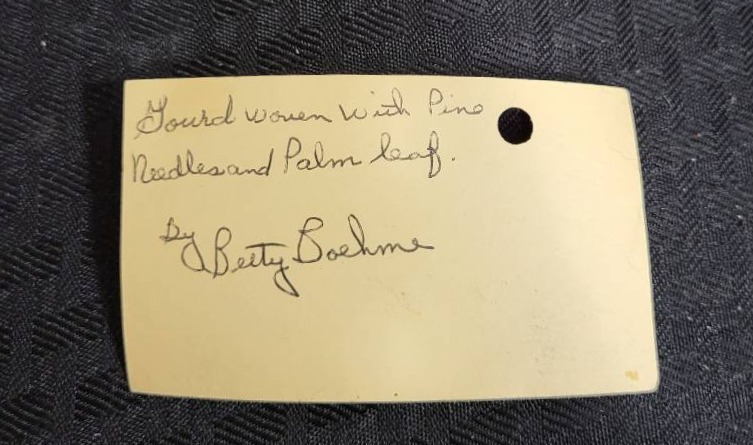 Gourd woven with Pine
Needles and Palm leaf.
By
Betty Boehme